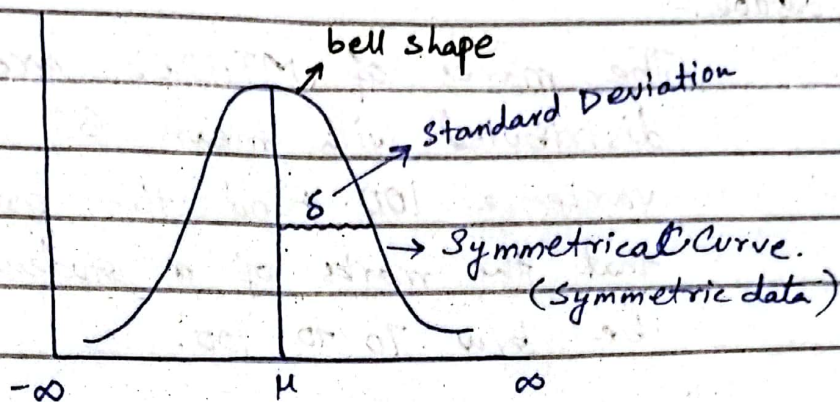 bell shape
Standard Deviation
δ
Symmetrical Curve.
(Symmetric data)
-∞ μ ∞